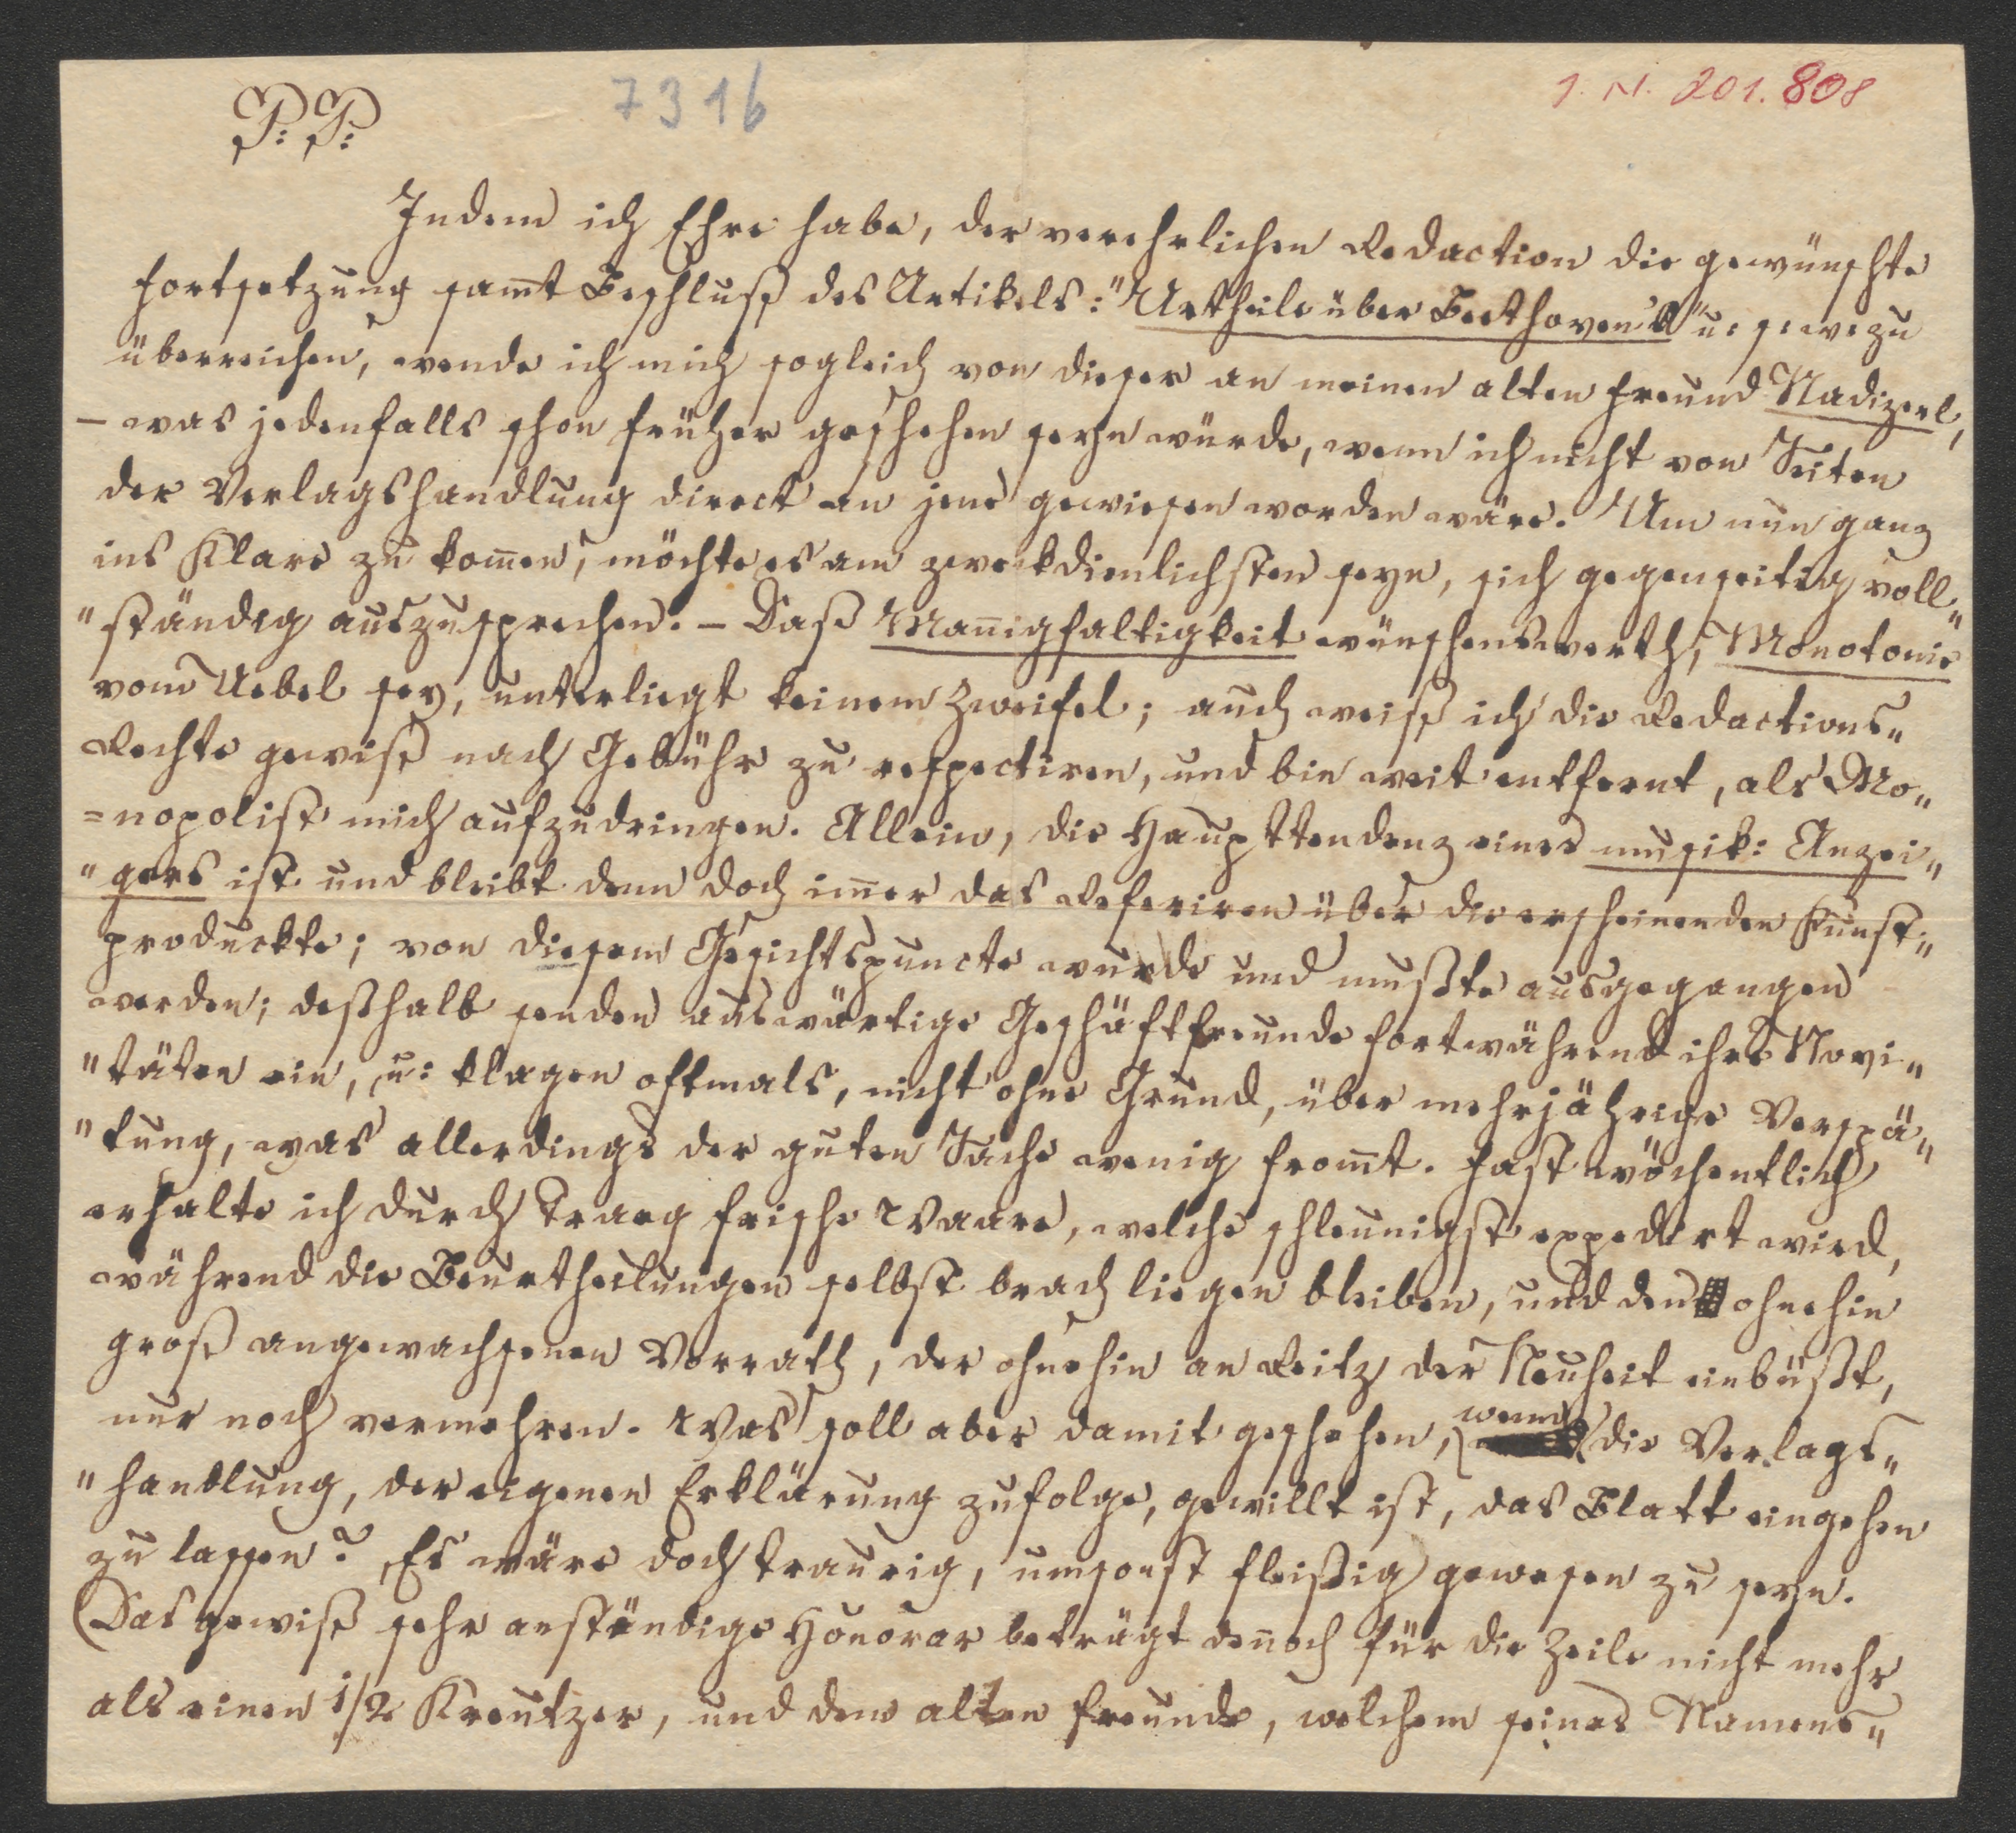 P: P:
7316
I. N. 201.808
Indem ich Ehre habe, der verehrlichen Redaction die gewünschte
Fortsetzung sam̅t Beschluß des Artikels: "Urtheile über Beethoven's" u: s: w: zu
überreichen, wende ich mich sogleich von dieser an meinen alten Freund Nadizerl,
– was jedenfalls schon früher geschehen seyn würde, wenn ich nicht von Seiten
der Verlagshandlung direct an jene gewiesen worden wäre. Um nun ganz
ins Klare zu kom̅en, möchte es am zweckdienlichsten seyn, sich gegenseitig voll„
"ständig auszusprechen. – Daß Man̅igfaltigkeit wünschenswerth, Monotonie
vom Uebel sey, unterliegt keinem Zweifel; auch weiß ich die Redactions„
Rechte gewiß nach Gebühr zu respectiren, und bin weit entfernt, als Mo„
=nopolist mich aufzudringen. Allein, die Haupttendenz eines musik: Anzei„
"gers ist und bleibt denn doch im̅er das Referiren über die erscheinenden Kunst„
produckte; von diesem Gesichtspuncte wurde und mußte ausgegangen
werden; deßhalb senden auswärtige Geschäftfreunde fortwährend ihre Novi„
"täten ein, u: klagen oftmals, nicht ohne Grund, über mehrjährige Verspä„
"tung, was allerdings der guten Sache wenig from̅t. Fast wöchentlich
erhalte ich durch Traeg frische Waare, welche schleunigst expedirt wird,
während die Beurtheilungen selbst brach liegen bleiben, und den ohnehin
groß angewachsenen Vorrath, der ohnehin an Reitz der Neuheit einbüßt,
nur noch vermehren. Was soll aber damit geschehen, wenn die Verlags„
"handlung, der eigenen Erklärung zufolge, gewillt ist, das Blatt eingehen
zu lassen? Es wäre doch traurig, umsonst fleißig gewesen zu seyn.
Das gewiß sehr anständige Honorar beträgt den̅och für die Zeile nicht mehr
als einen 1/2 Kreutzer, und dem alten Freunde, welchem seines Namens„